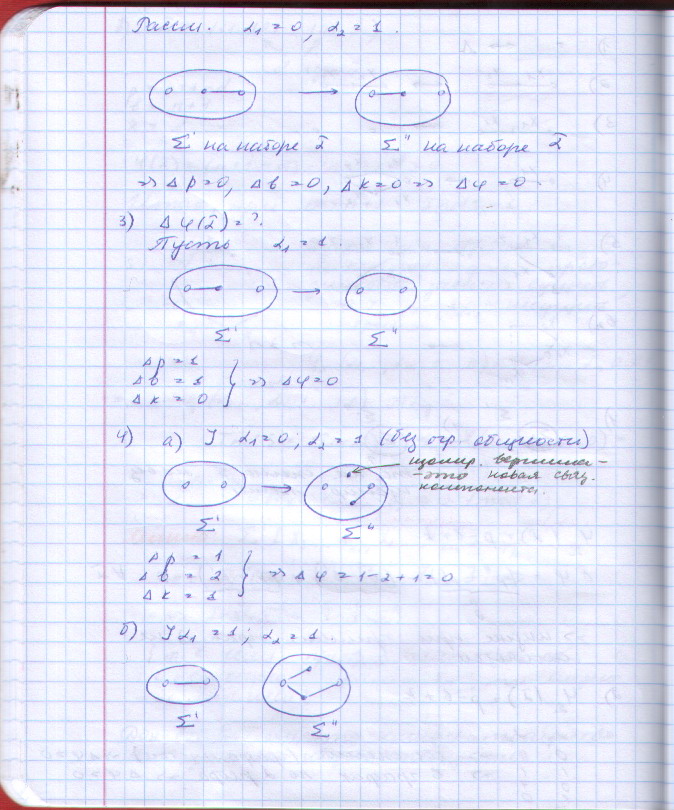 Рассм. α₁=0, α₂=1.
Σ' на наборе α̃ Σ'' на наборе α̃
=> Δp=0, Δв=0, Δк=0 => Δφ=0.
3) Δφ(α̃)=?.
Пусть α₁=1.
Σ' Σ''
Δp=1
Δв=1 } => Δφ=0
Δк=0
4) а) ] α₁=0; α₂=1 (без огр. общности)
изолир. вершина -
- это новая связ.
компонента.
Σ' Σ''
Δp = 1
Δв = 2 } => Δφ=1-2+1=0
Δк = 1
б) ] α₁=1; α₂=1.
Σ' Σ''